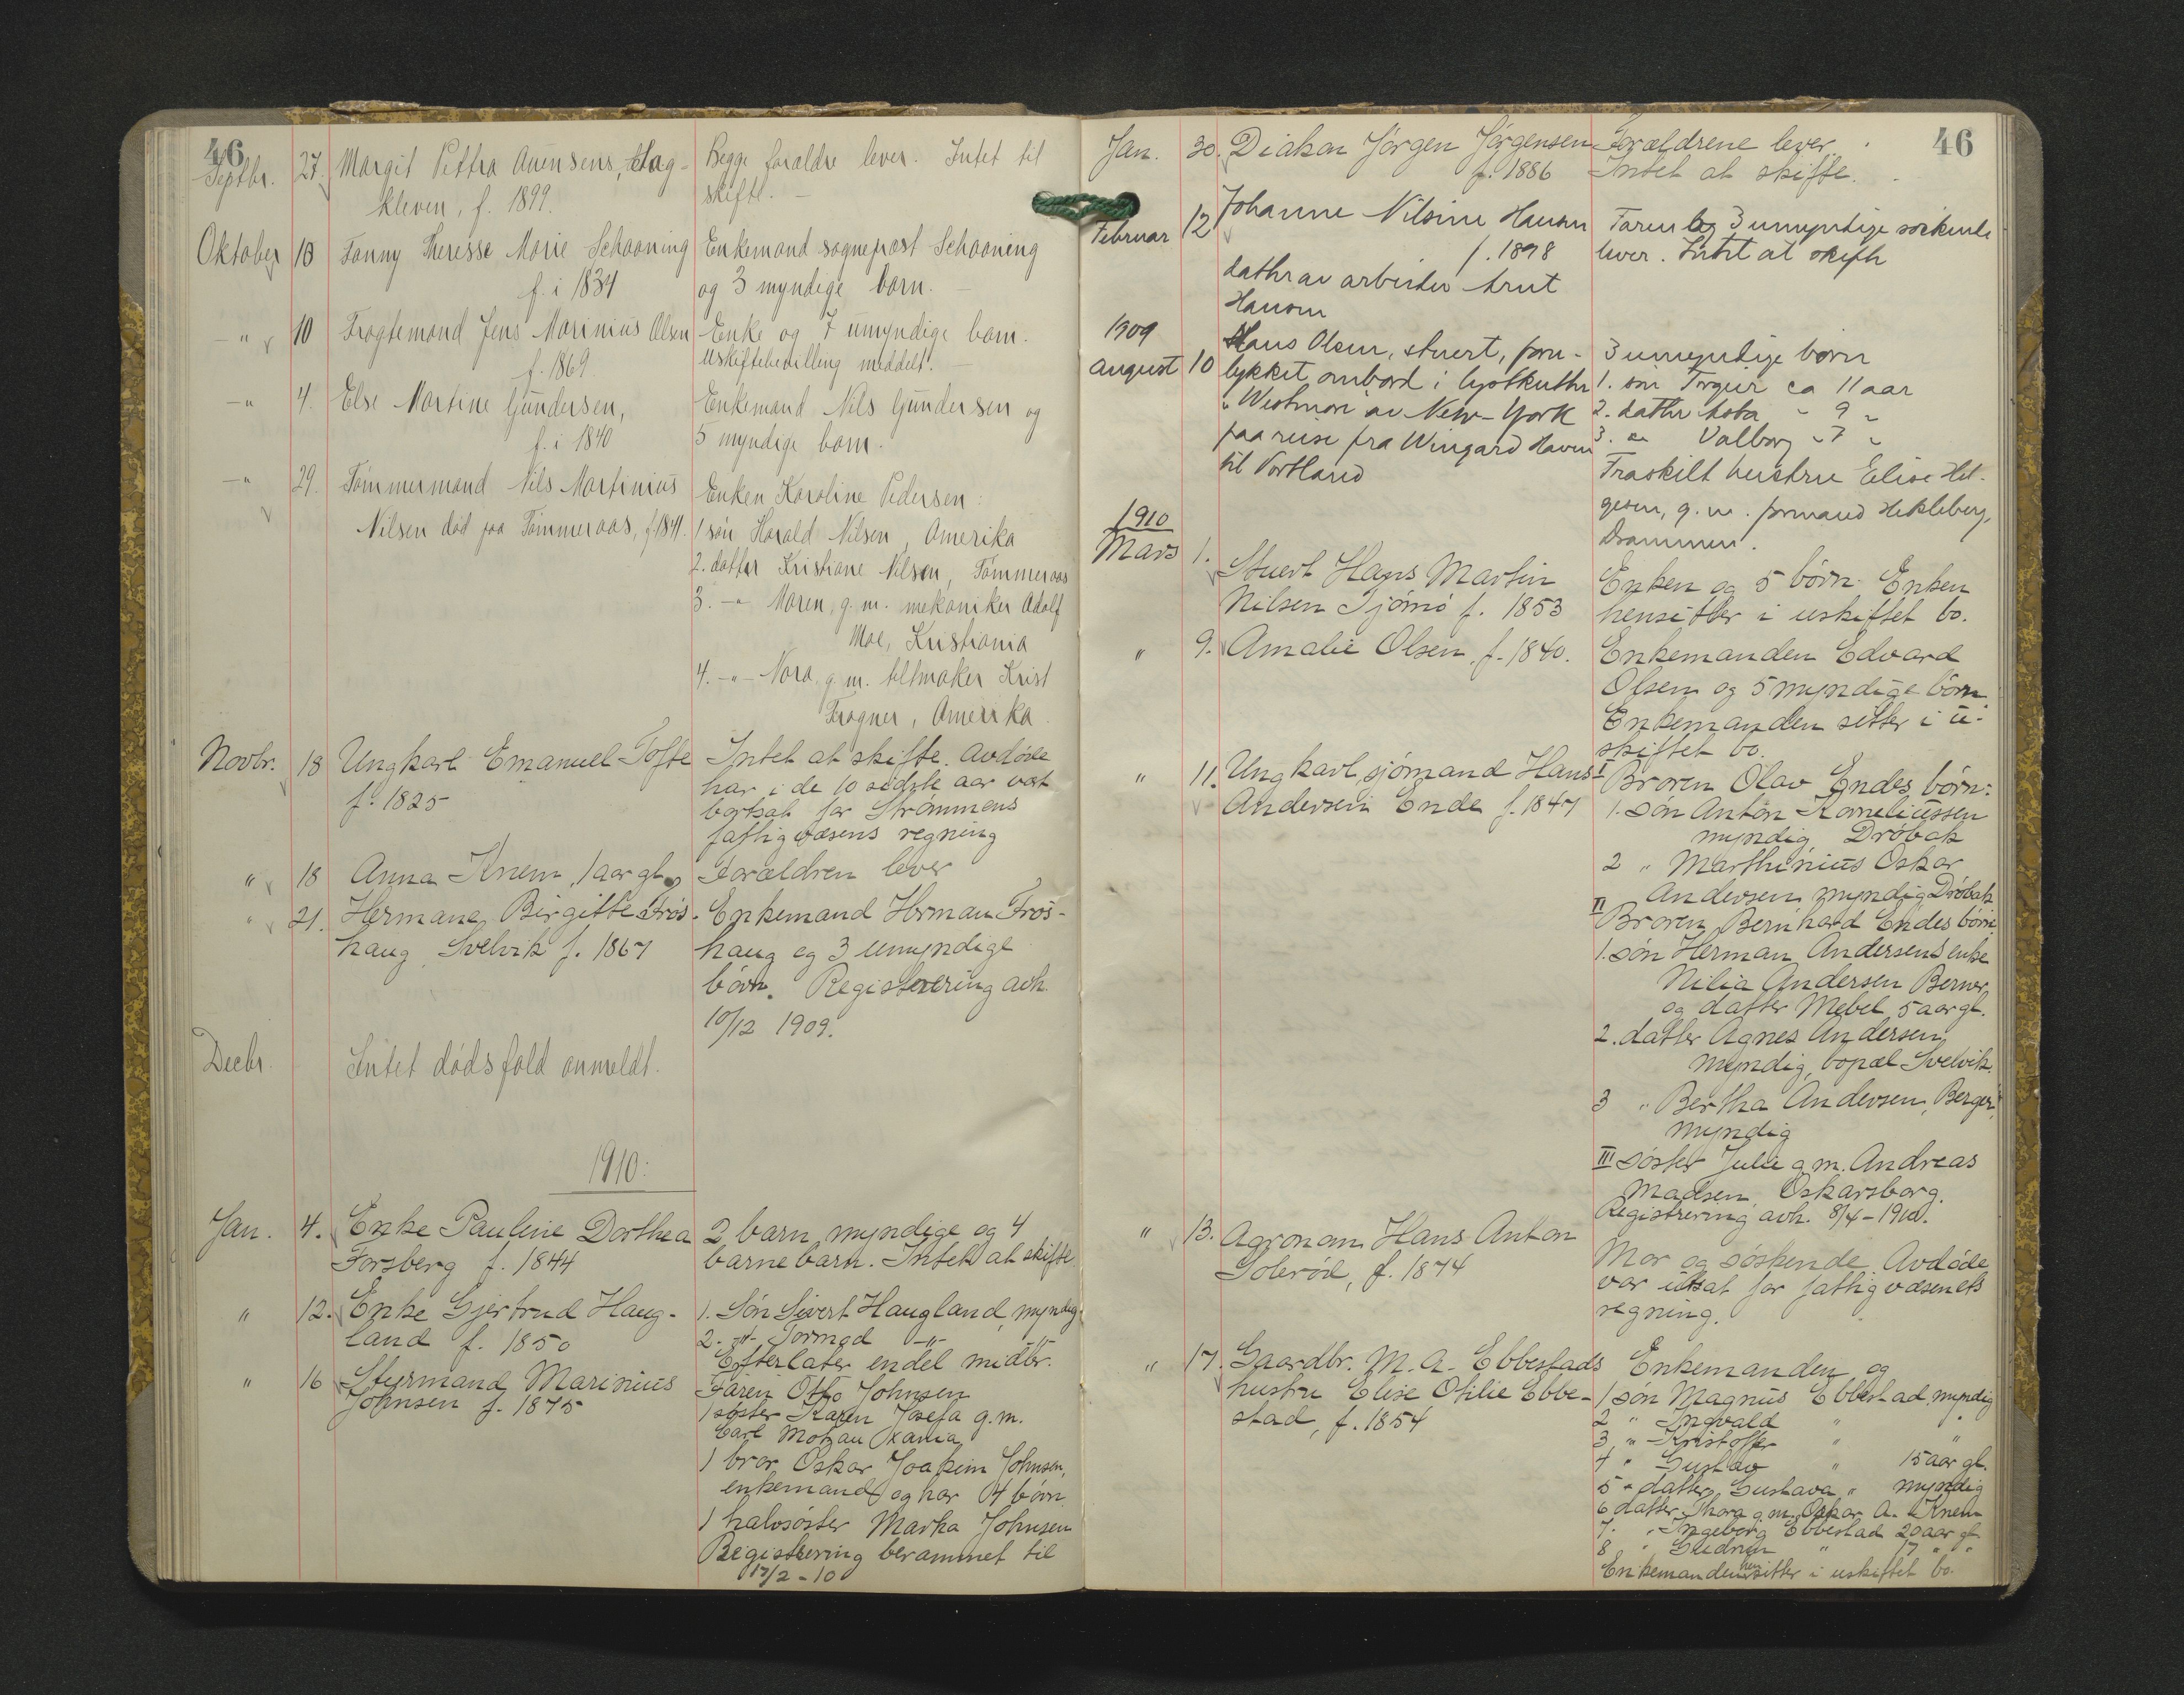 46
Septbr. 27. Margit Pettra Anensens, Hag-
kleven, f. 1899.
Begge forældre lever. Intet til
skifte. —
Oktober 10 Fanny Theresse Marie Schaaning
f. i 1834
Enkemand sogneprost Schaaning
og 3 myndige barn. —
— " 10 Fragtemand Jens Marinius Olsen
f. 1869.
Enke og 7 umyndige barn.
Uskiftebevilling meddelt. —
— " 4. Else Martine Gundersen,
f. i 1840
Enkemand Nils Gundersen og
5 myndige barn.
— " 29. Tömmermand Nils Martinius
Nilsen död paa Tömmeraas, f 1841.
Enken Karoline Pedersen:
1 sön Harald Nilsen, Amerika
2. datter Kristiane Nilsen, Tömmeraas
3. — " Maren, g. m. mekaniker Adolf
Moe, Kristiania
4. — " — Nora, g. m. Krist
Fragner, Amerika.
Novbr. 18 Ungkarl Emanuel Tofte
f. 1825
Intet at skifte. Avdöde
har i de 10 sidste aar vært
bortsat for Strömmens
fattigvæsens regning
" 18 Anna Knem, 1 aar gl.
Forældren lever
" 21. Hermana Birgitte Frös-
haug, Svelvik f. 1867
Enkemand Herman Frös-
haug og 3 umyndige
börn. Registrering avh.
10/12 1909.
Decbr. Intet dödsfald anmeldt.
1910:
Jan. 4. Enke Pauline Dorthea
Forsberg f. 1844
2 barn myndige og 4
barnebarn. Intet at skifte
" 12. Enke Gjertrud Haug-
land f. 1850
1. Sön Sivert Haugland, myndig
2. — " — Tormod — " — — " —
Efterlater endel midler.
" 16 Styrmand Marinius
Johnsen f. 1875
Faren Otto Johnsen
1 söster Karen Josefa g. m.
Carl Xania
1 bror Oskar Joakim Johnsen,
enkemand og har 4 börn
1 halvsöster Marka Johnsen
Registrering berammet til
17/2 - 10
46
Jan. 30. Diakon Jörgen Jörgensen
f. 1886
Forældrene lever.
Intet at skifte.
Februar 12 Johanne Nilsine Hansen
f. 1898
datter av arbeider Knut
Hansen
Faren og 3 umyndige söskende
lever. Intet at skifte
1909
August 10 Hans Olsen, stuert, foru-
lykket ombord i lystkutter
"Westmor" av New-York
paa reise fra Wingard Haven
til Portland
3 umyndige børn
1. sön Torgeir ca 11 aar
2. datter Asta " 9 "
3. " Valborg " 7 "
Fraskilt hustru Elise Hel-
gesen, g. m. formand Hekleberg,
Drammen.
1910
Mars 1. Stuert Hans Martin
Nilsen Tjömö f. 1853
Enken og 5 börn. Enken
hensitter i uskiftet bo.
" 9. Amalie Olsen, f. 1840.
Enkemanden Edvard
Olsen og 5 myndige börn
Enkemanden sitter i u-
skiftet bo.
" 11. Ungkarl, sjömand Hans
Andersen Ende f. 1847
I Broren Olav Endes börn:
1. sön Anton Korneliussen
myndig Dröbak
2 " Marthinius Oskar
Andersen myndig Dröbak
II Broren Bernhard Endes börn
1. sön Herman Andersens enke
Nilia Andersen Berner
og datter Mebel 5 aar gl.
2. datter Agnes Andersen
myndig, bopæl Svelvik.
3 " Bertha Andersen, Berger,
myndig
III söster Julie g. m. Andreas
Madsen Oskarsborg.
Registrering avh. 8/4 - 1910.
" 13. Agronom Hans Anton
Soleröd, f. 1874
Mor og söskende. Avdöde
var utsat for fattigvæsenets
regning.
" 17. Gaardbr. M. A. Ebbestads
hustru Elise Otilie Ebbe-
stad, f. 1854
Enkemanden og
1 sön Magnus Ebbestad, myndig
2 " Ingvald " "
3 " Kristoffer " "
4 " Gustav " 15 aar gl.
5 " datter Gustava " myndig
6 datter Thora g. m. Oskar A. Knem
7. " Ingeborg Ebbestad 20 aar gl.
8 " Gudrun " 17 " "
Enkemanden hensitter i uskiftet bo.